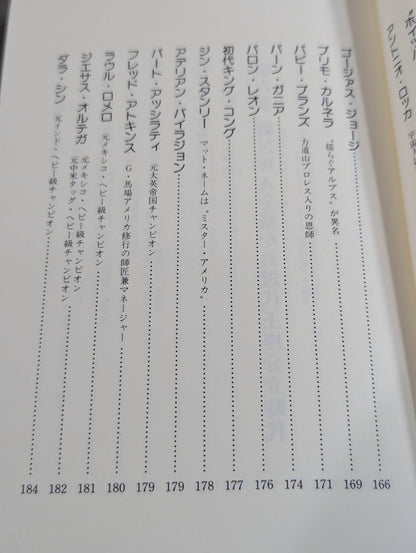 アントニオ・ロッカ
ゴージアス・ジョージ 166
プリモ・カルネラ “揺らぐアルプス”が異名 169
バビー・ブランズ 力道山プロレス入りの恩師 171
バーン・ガニア 174
バロン・レオン 176
初代キング・コング 177
ジン・スタンリー マット・ネームは“ミスター・アメリカ” 178
アデリアン・バイラジョン 179
バート・アッシラティ 元大英帝国チャンピオン 179
フレッド・アトキンス G・馬場アメリカ修行の師匠兼マネージャー 180
ラウル・ロメロ 元メキシコ・ヘビー級チャンピオン 181
ジエサス・オルテガ 元メキシコ・ヘビー級チャンピオン
元中米タッグ・ヘビー級チャンピオン 182
ダラ・シン 元インド・ヘビー級チャンピオン 184